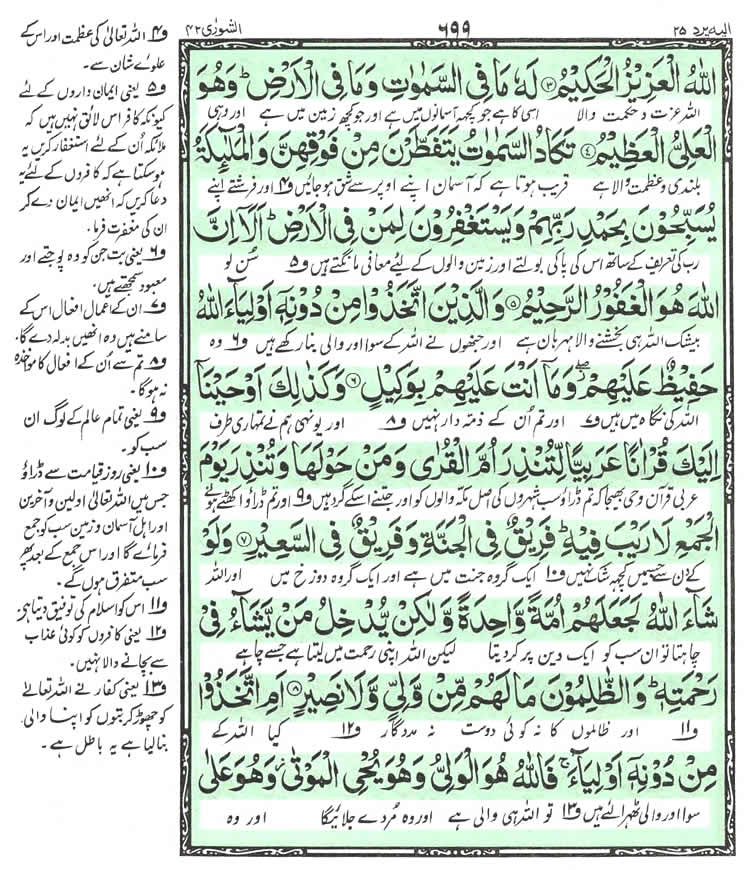 الیه یرد ۲۵
٦٩٩
الشورٰی ۴۲
اللهُ الْعَزِيْزُ الْحَكِيْمُ ۝۳ لَهٗ مَا فِى السَّمٰوٰتِ وَمَا فِى الْاَرْضِ ؕ وَهُوَ
اللہ عزت و حکمت والا اسی کا ہے جو کچھ آسمانوں میں ہے اور جو کچھ زمین میں ہے اور وہی
الْعَلِىُّ الْعَظِيْمُ ۝۴ تَكَادُ السَّمٰوٰتُ يَتَفَطَّرْنَ مِنْ فَوْقِهِنَّ وَالْمَلٰٓئِكَةُ
بلندی و عظمت والا ہے قریب ہوتا ہے کہ آسمان اپنے اوپر سے شق ہو جائیں ف۴ اور فرشتے اپنے
يُسَبِّحُوْنَ بِحَمْدِ رَبِّهِمْ وَيَسْتَغْفِرُوْنَ لِمَنْ فِى الْاَرْضِ ؕ اَلَاۤ اِنَّ
رب کی تعریف کے ساتھ اس کی پاکی بولتے اور زمین والوں کے لیئے معافی مانگتے ہیں ف۵ سُن لو
اللهَ هُوَ الْغَفُوْرُ الرَّحِيْمُ ۝۵ وَالَّذِيْنَ اتَّخَذُوْا مِنْ دُوْنِهٖۤ اَوْلِيَآءَ اللهُ
بیشک اللہ ہی بخشنے والا مہربان ہے اور جنھوں نے اللہ کے سوا اور والی بنا رکھے ہیں ف۶ وہ
حَفِيْظٌ عَلَيْهِمْ ۖ وَمَاۤ اَنْتَ عَلَيْهِمْ بِوَكِيْلٍ ۝۶ وَكَذٰلِكَ اَوْحَيْنَاۤ
اللہ کی نگاہ میں ہیں ف۷ اور تم اُن کے ذمہ دار نہیں ف۸ اور یونہی ہم نے تمہاری طرف
اِلَيْكَ قُرْاٰنًا عَرَبِيًّا لِّتُنْذِرَ اُمَّ الْقُرٰى وَمَنْ حَوْلَهَا وَتُنْذِرَ يَوْمَ
عربی قرآن وحی بھیجا کہ تم ڈراؤ سب شہروں کی اصل مکہ والوں کو اور جتنے اسکے گرد ہیں ف۹ اور تم ڈراؤ اکٹھے ہونے
الْجَمْعِ لَا رَيْبَ فِيْهِ ؕ فَرِيْقٌ فِى الْجَنَّةِ وَفَرِيْقٌ فِى السَّعِيْرِ ۝۷ وَلَوْ
کے دن سے جسمیں کچھ شک نہیں ف۱۰ ایک گروہ جنت میں ہے اور ایک گروہ دوزخ میں اور اللہ
شَآءَ اللهُ لَجَعَلَهُمْ اُمَّةً وَّاحِدَةً وَّلٰكِنْ يُّدْخِلُ مَنْ يَّشَآءُ فِىْ
چاہتا تو ان سب کو ایک دین پر کر دیتا لیکن اللہ اپنی رحمت میں لیتا ہے جسے چاہے
رَحْمَتِهٖ ؕ وَالظّٰلِمُوْنَ مَا لَهُمْ مِّنْ وَّلِىٍّ وَّلَا نَصِيْرٍ ۝۸ اَمِ اتَّخَذُوْا
ف۱۱ اور ظالموں کا نہ کوئی دوست نہ مددگار ف۱۲ کیا اللہ کے
مِنْ دُوْنِهٖۤ اَوْلِيَآءَ ۚ فَاللهُ هُوَ الْوَلِىُّ وَهُوَ يُحْىِ الْمَوْتٰى وَهُوَ عَلٰى
سوا اور والی ٹھہرالئے ہیں ف۱۳ تو اللہ ہی والی ہے اور وہ مُردے جلائیگا اور وہ
ف۴ اللہ تعالیٰ کی عظمت اور اس کے
علوے شان سے۔
ف۵ یعنی ایمان داروں کے لئے
کیونکہ کافر اس لائق نہیں ہیں کہ
ملائکہ اُن کے لئے استغفار کریں یہ
ہو سکتا ہے کہ کافروں کے لئے یہ
دعا کریں کہ انھیں ایمان دے کر
ان کی مغفرت فرما۔
ف۶ یعنی بت جن کو وہ پوجتے اور
معبود سمجھتے ہیں۔
ف۷ ان کے اعمال افعال اس کے
سامنے ہیں وہ انھیں بدلہ دے گا۔
ف۸ تم سے اُن کے افعال کا مواخذہ
نہ ہوگا۔
ف۹ یعنی تمام عالم کے لوگ ان
سب کو۔
ف۱۰ یعنی روز قیامت سے ڈراؤ
جس میں اللہ تعالیٰ اولین و آخرین
اور اہل آسمان و زمین سب کو جمع
فرمائے گا اور اس جمع کے بعد پھر
سب متفرق ہوں گے۔
ف۱۱ اس کو اسلام کی توفیق دیتا ہے۔
ف۱۲ یعنی کافروں کو کوئی عذاب
سے بچانے والا نہیں۔
ف۱۳ یعنی کفار نے اللہ تعالےٰ
کو چھوڑ کر بتوں کو اپنا والی
بنا لیا ہے یہ باطل ہے۔